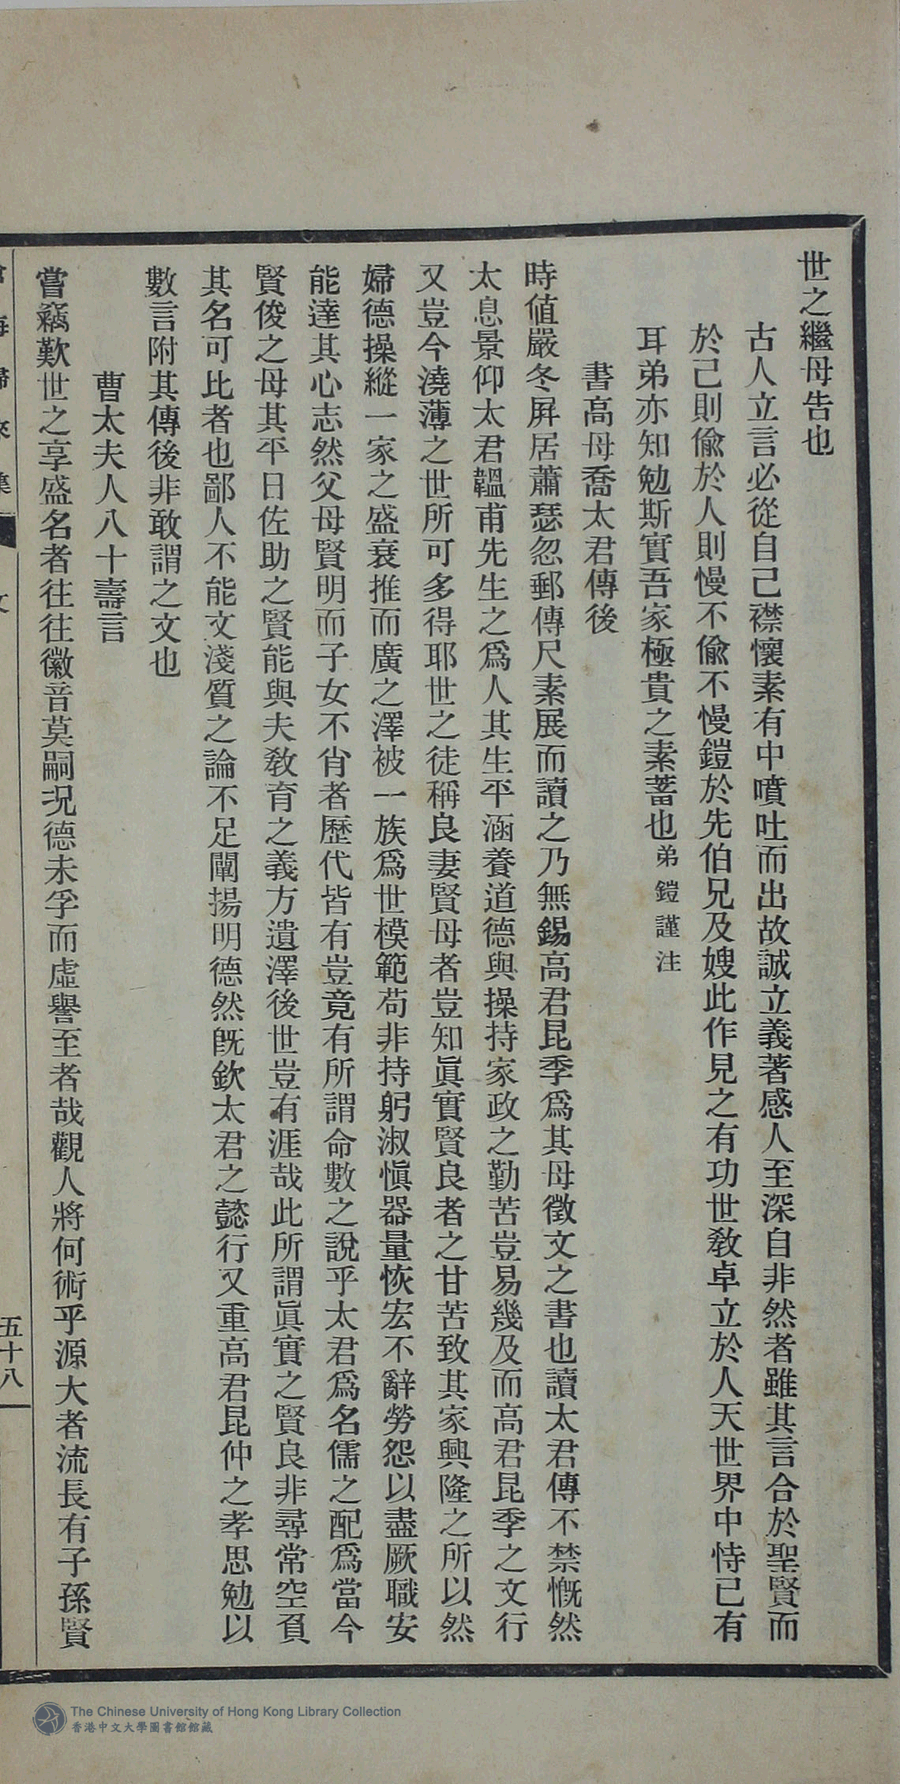 世之繼母告也
古人立言必從自己襟懷素有中噴吐而出故誠立義著感人至深自非然者雖其言合於聖賢而
於己則偸於人則慢不偸不慢鎧於先伯兄及嫂此作見之有功世敎卓立於人天世界中恃已有
耳弟亦知勉斯實吾家極貴之素蓄也弟鎧謹注
書高母喬太君傳後
時値嚴冬屛居蕭瑟忽郵傳尺素展而讀之乃無錫高君昆季爲其母徵文之書也讀太君傳不禁慨然
太息景仰太君韞甫先生之爲人其生平涵養道德與操持家政之勤苦豈易幾及而高君昆季之文行
又豈今澆薄之世所可多得耶世之徒稱良妻賢母者豈知眞實賢良者之甘苦致其家興隆之所以然
婦德操縱一家之盛衰推而廣之澤被一族爲世模範苟非持躬淑愼器量恢宏不辭勞怨以盡厥職安
能達其心志然父母賢明而子女不肖者歷代皆有豈竟有所謂命數之說乎太君爲名儒之配爲當今
賢俊之母其平日佐助之賢能與夫敎育之義方遺澤後世豈有涯哉此所謂眞實之賢良非尋常空負
其名可比者也鄙人不能文淺質之論不足闡揚明德然旣欽太君之懿行又重高君昆仲之孝思勉以
數言附其傳後非敢謂之文也
曹太夫人八十壽言
嘗竊歎世之享盛名者往往徽音莫嗣況德未孚而虛譽至者哉觀人將何術乎源大者流長有子孫賢
海歸來集
文
五十八
The Chinese University of Hong Kong Library Collection
香港中文大學圖書館館藏